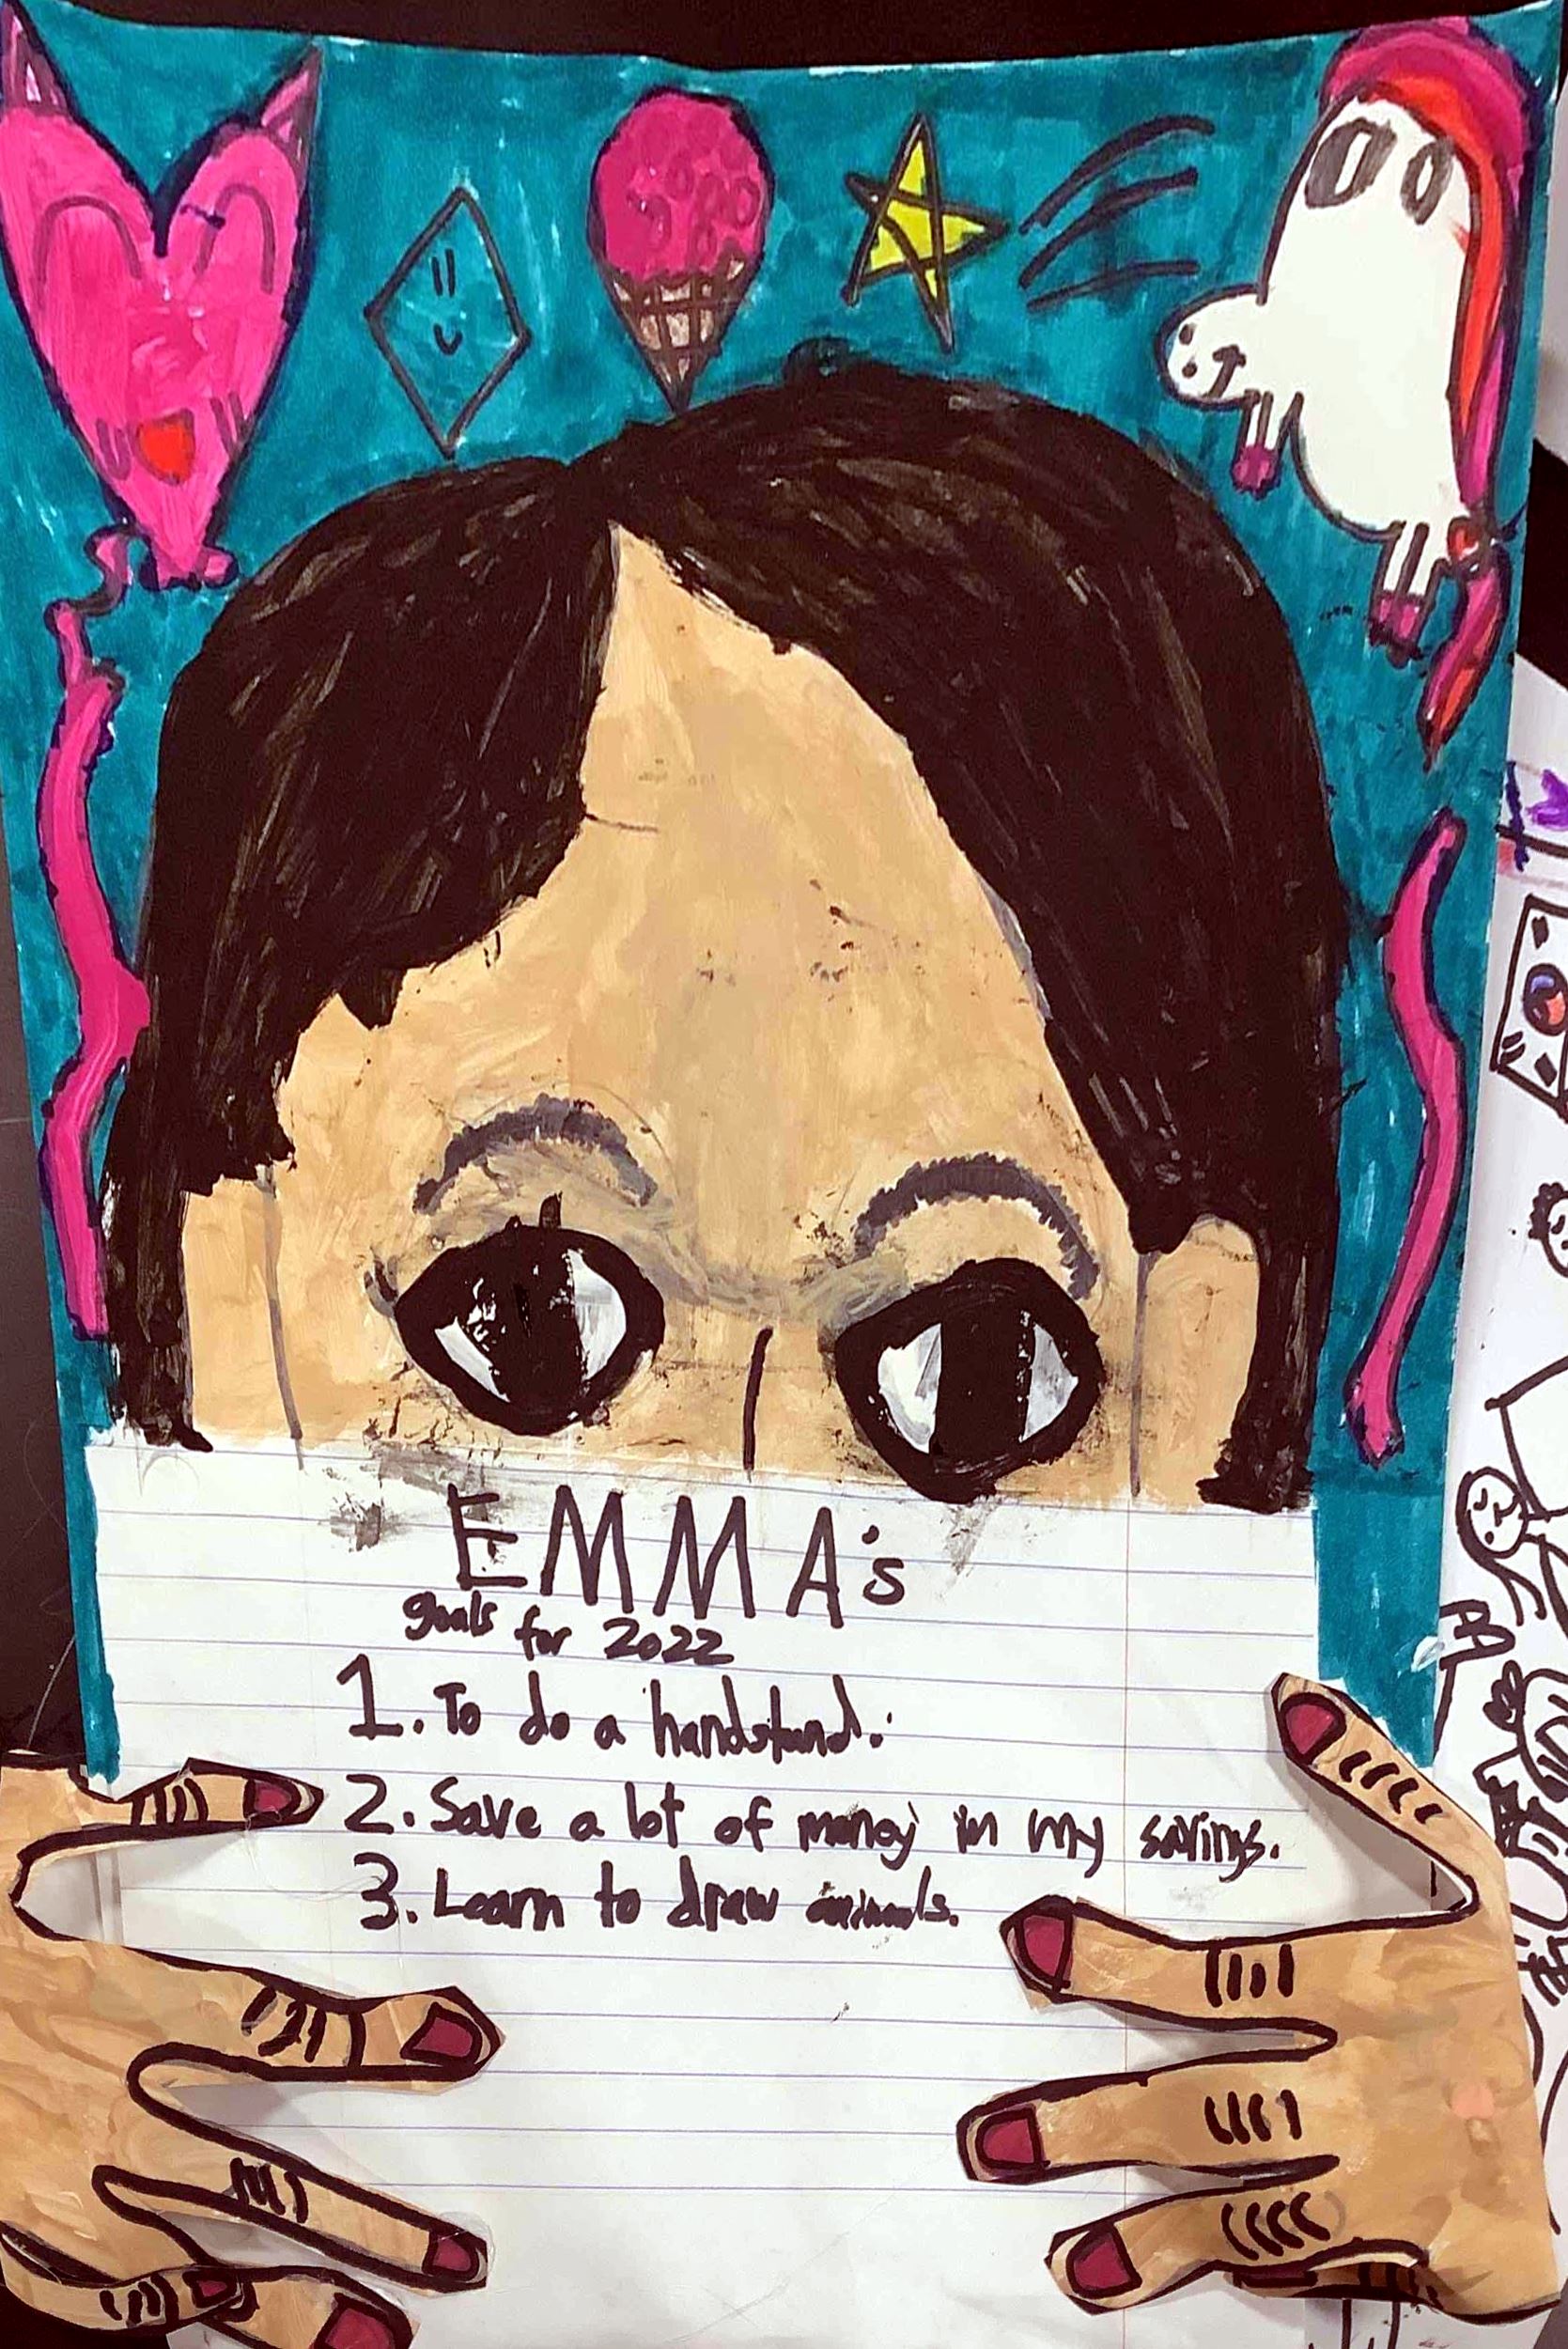 EMMA's
goals for 2022
1. To do a handstand.
2. Save a lot of money in my savings.
3. Learn to draw animals.